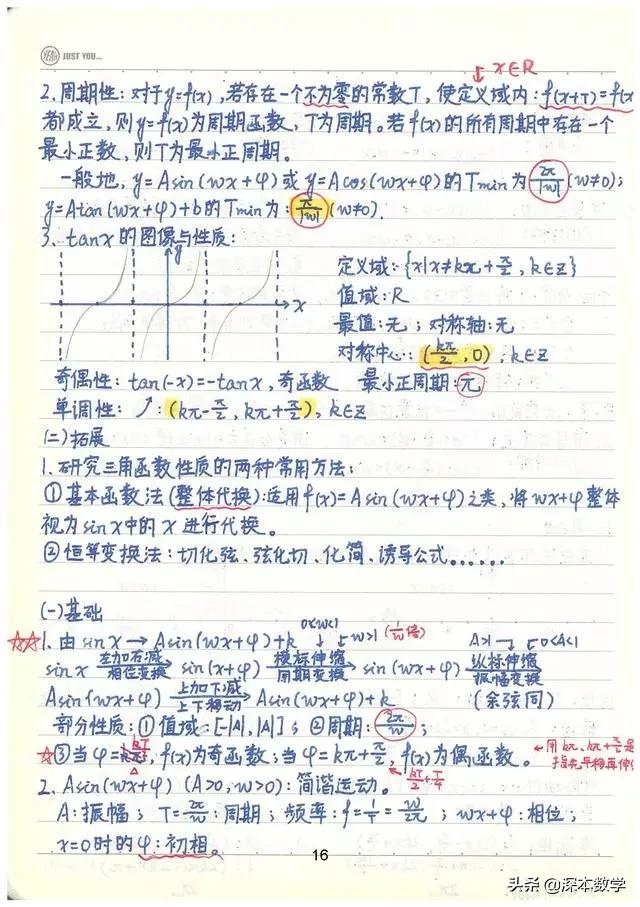 YEAH JUST YOU...
x∈R
2.周期性：对于y=f(x)，若存在一个不为零的常数T，使定义域内：f(x+T)=f(x
都成立，则y=f(x)为周期函数，T为周期。若f(x)的所有周期中存在一个
最小正数，则T为最小正周期。
一般地，y=Asin(wx+φ)或y=Acos(wx+φ)的Tmin为2π/|w|(w≠0)；
y=Atan(wx+φ)+b的Tmin为：π/|w|(w≠0).
3. tanx的图像与性质：
y
x
定义域：{x|x≠kπ+π/2，k∈Z}
值域：R
最值：无；对称轴：无
对称中心：(kπ/2，0)，k∈Z
奇偶性：tan(-x)=-tanx，奇函数 最小正周期：元
单调性：↗ (kπ-π/2，kπ+π/2)，k∈Z
(二)拓展
1.研究三角函数性质的两种常用方法：
①基本函数法(整体代换)：运用f(x)=Asin(wx+φ)之类，将wx+φ整体
视为sinx中的x进行代换。
②恒等变换法：切化弦、弦化切、化简、诱导公式......
(一)基础
0<w<1
☆☆1.由sinx→Asin(wx+φ)+k w>1(1/w倍) A>1 0<A<1
sinx 左加右减 相位变换 → sin(x+φ) 横标伸缩 周期变换 → sin(wx+φ) 纵标伸缩 振幅变换 →
Asin(wx+φ) 上加下减 上下移动 → Asin(wx+φ)+k (余弦同)
部分性质：①值域：[-|A|,|A|]；②周期：2π/w；
☆③当φ=，f(x)为奇函数；当φ=kπ+π/2，f(x)为偶函数。 ←用kπ、kπ+π/2是
kT/2+T/4
指先平移再伸(
2. Asin(wx+φ)(A>0，w>0)：简谐运动。
A：振幅；T=2π/w：周期；频率：f=1/T=w/2π；wx+φ：相位；
x=0时的φ：初相。
16
头条@深本数学